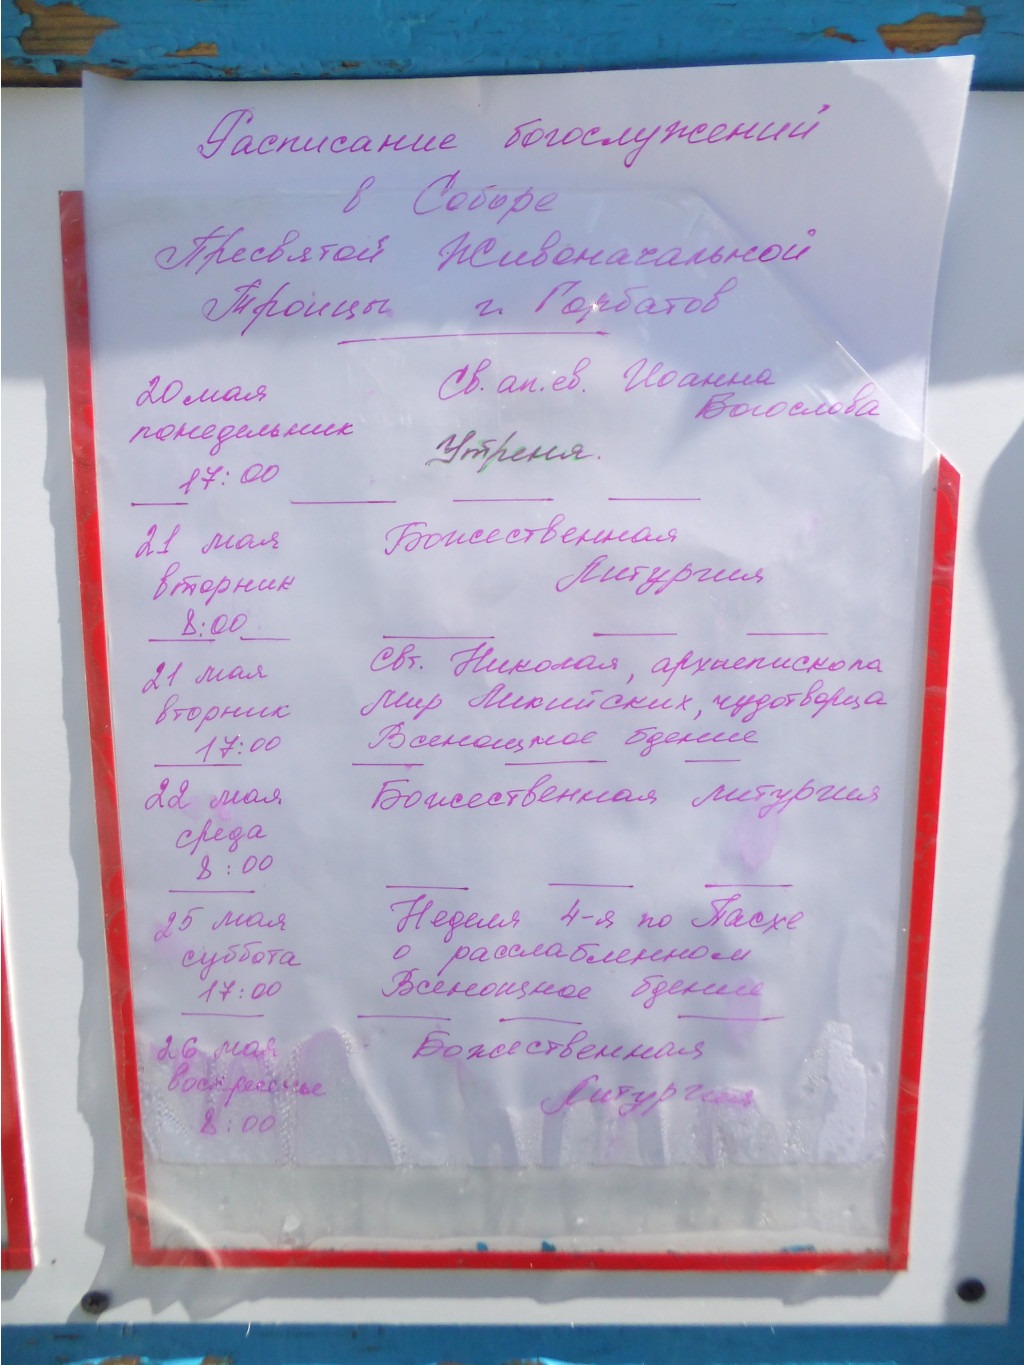 Расписание богослужений
в Соборе
Пресвятой Живоначальной
Троицы г. Горбатов
20 мая Св. ап. ев. Иоанна
Богослова
понедельник
Утреня.
17:00
21 мая Божественная
вторник Литургия
8:00
21 мая Свт. Николая, архиепископа
вторник Мир Ликийских, чудотворца
17:00 Всенощное бдение
22 мая Божественная литургия
среда
8:00
25 мая Неделя 4-я по Пасхе
суббота о расслабленном
17:00 Всенощное бдение
26 мая Божественная
воскресенье Литургия
8:00